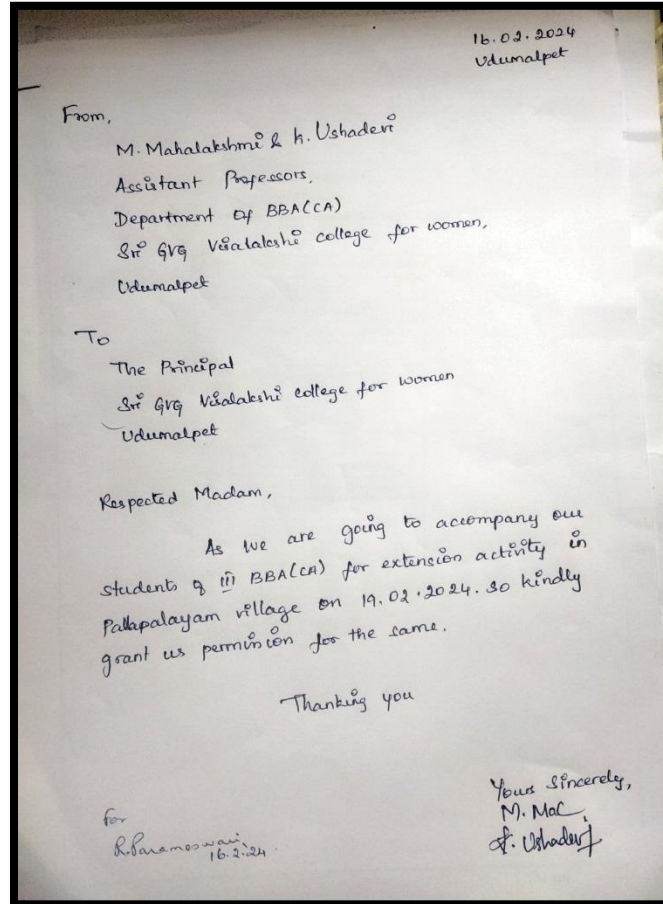 16.02.2024
Udumalpet
From,
M. Mahalakshmi & K. Ushadevi
Assistant Professors,
Department of BBA(CA)
Sri GVG Visalakshi college for women,
Udumalpet
To
The Principal
Sri GVG Visalakshi college for women
Udumalpet
Respected Madam,
As we are going to accompany our
students of III BBA(CA) for extension activity in
Pallapalayam village on 19.02.2024. So kindly
grant us permission for the same.
Thanking you
Yours Sincerely,
M. Mac
K. Ushadevi
for
R. Parameswari
16.2.24